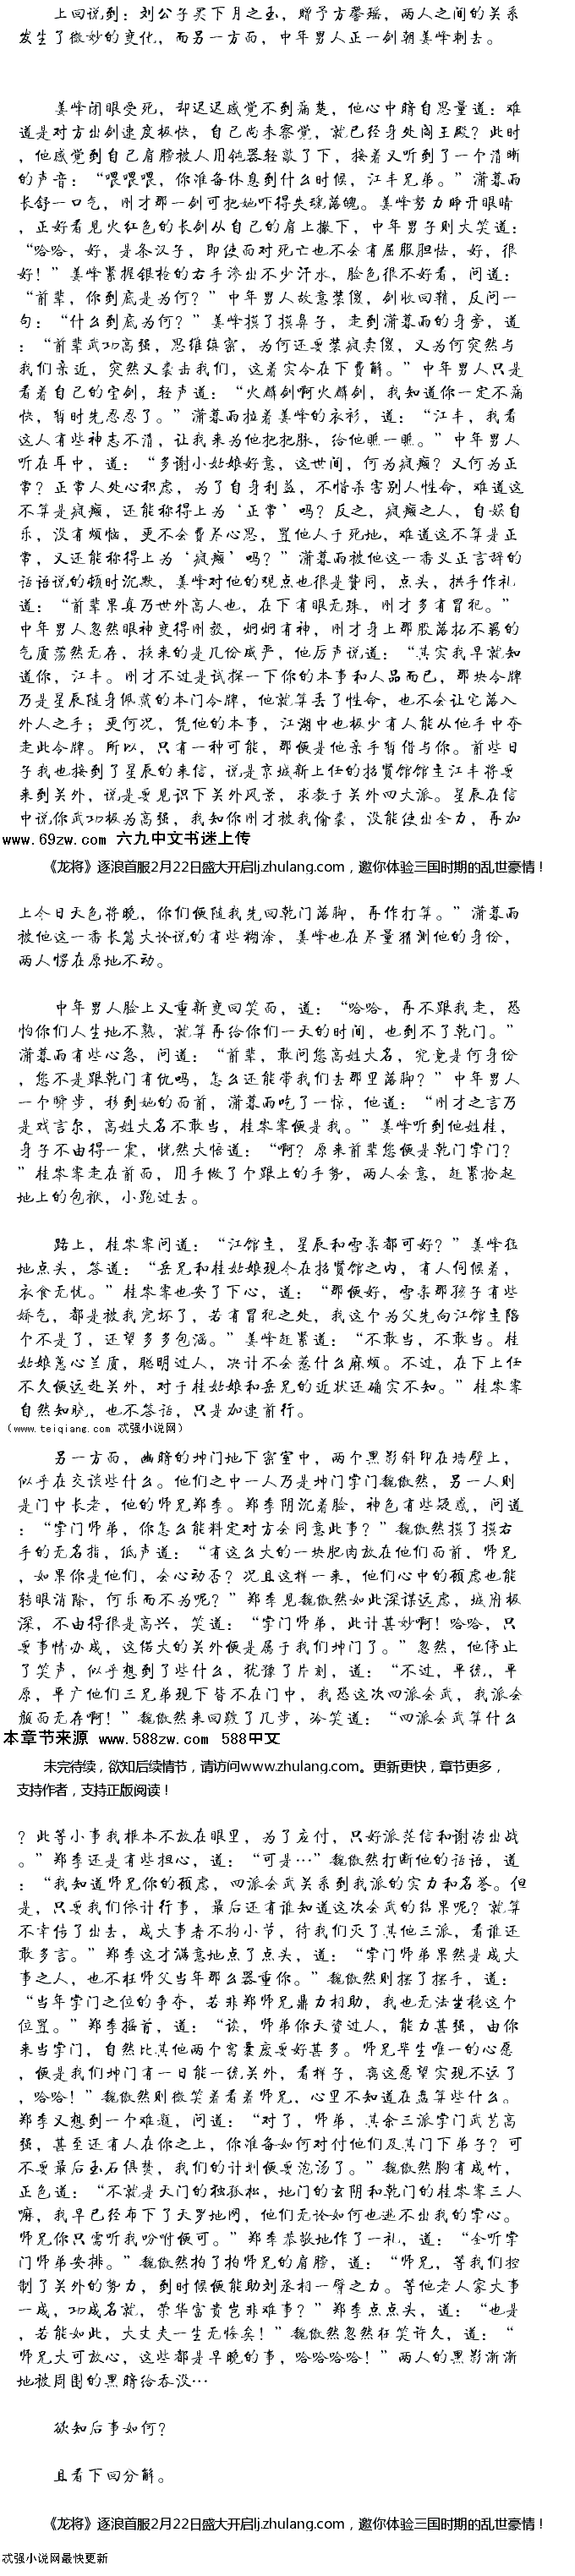 上回说到：刘公子买下月之玉，赠予方馨瑶，两人之间的关系
发生了微妙的变化，而另一方面，中年男人正一剑朝姜峰刺去。
姜峰闭眼受死，却迟迟感觉不到痛楚，他心中暗自思量道：难
道是对方出剑速度极快，自己尚未察觉，就已经身处阎王殿？此时
，他感觉到自己肩膀被人用钝器轻敲了下，接着又听到了一个清晰
的声音：“喂喂喂，你准备休息到什么时候，江丰兄弟。”潇暮雨
长舒一口气，刚才那一剑可把她吓得失魂落魄。姜峰努力睁开眼睛
，正好看见火红色的长剑从自己的肩上撤下，中年男子则大笑道：
“哈哈，好，是条汉子，即使面对死亡也不会有屈服胆怯，好，很
好！”姜峰紧握银枪的右手渗出不少汗水，脸色很不好看，问道：
“前辈，你到底是为何？”中年男人故意装傻，剑收回鞘，反问一
句：“什么到底为何？”姜峰摸了摸鼻子，走到潇暮雨的身旁，道
：“前辈武功高强，思维缜密，为何还要装疯卖傻，又为何突然与
我们亲近，突然又袭击我们，这着实令在下费解。”中年男人只是
看着自己的宝剑，轻声道：“火麟剑啊火麟剑，我知道你一定不痛
快，暂时先忍忍了。”潇暮雨拉着姜峰的衣衫，道：“江丰，我看
这人有些神志不清，让我来为他把把脉，给他瞧一瞧。”中年男人
听在耳中，道：“多谢小姑娘好意，这世间，何为疯癫？又何为正
常？正常人处心积虑，为了自身利益，不惜杀害别人性命，难道这
不算是疯癫，还能称得上为‘正常’吗？反之，疯癫之人，自娱自
乐，没有烦恼，更不会费尽心思，置他人于死地，难道这不算是正
常，又还能称得上为‘疯癫’吗？”潇暮雨被他这一番义正言辞的
话语说的顿时沉默，姜峰对他的观点也很是赞同，点头，拱手作礼
道：“前辈果真乃世外高人也，在下有眼无珠，刚才多有冒犯。”
中年男人忽然眼神变得刚毅，炯炯有神，刚才身上那股落拓不羁的
气质荡然无存，换来的是几份威严，他厉声说道：“其实我早就知
道你，江丰。刚才不过是试探一下你的本事和人品而已，那块令牌
乃是星辰随身佩戴的本门令牌，他就算丢了性命，也不会让它落入
外人之手；更何况，凭他的本事，江湖中也极少有人能从他手中夺
走此令牌。所以，只有一种可能，那便是他亲手暂借与你。前些日
子我也接到了星辰的来信，说是京城新上任的招贤馆馆主江丰将要
来到关外，说是要见识下关外风景，求教于关外四大派。星辰在信
中说你武功极为高强，我知你刚才被我偷袭，没能使出全力，再加
www.69zw.com 六九中文书迷上传
《龙将》逐浪首服2月22日盛大开启lj.zhulang.com，邀你体验三国时期的乱世豪情！
上今日天色将晚，你们便随我先回乾门落脚，再作打算。”潇暮雨
被他这一番长篇大论说的有些糊涂，姜峰也在尽量猜测他的身份，
两人愣在原地不动。
中年男人脸上又重新变回笑面，道：“哈哈，再不跟我走，恐
怕你们人生地不熟，就算再给你们一天的时间，也到不了乾门。”
潇暮雨有些心急，问道：“前辈，敢问您高姓大名，究竟是何身份
，您不是跟乾门有仇吗，怎么还能带我们去那里落脚？”中年男人
一个瞬步，移到她的面前，潇暮雨吃了一惊，他道：“刚才之言乃
是戏言尔，高姓大名不敢当，桂岑霖便是我。”姜峰听到他姓桂，
身子不由得一震，恍然大悟道：“啊？原来前辈您便是乾门掌门？
”桂岑霖走在前面，用手做了个跟上的手势，两人会意，赶紧拾起
地上的包袱，小跑过去。
路上，桂岑霖问道：“江馆主，星辰和雪柔都可好？”姜峰猛
地点头，答道：“岳兄和桂姑娘现今在招贤馆之内，有人伺候着，
衣食无忧。”桂岑霖也安了下心，道：“那便好，雪柔那孩子有些
娇气，都是被我宠坏了，若有冒犯之处，我这个为父先向江馆主陪
个不是了，还望多多包涵。”姜峰赶紧道：“不敢当，不敢当。桂
姑娘蕙心兰质，聪明过人，决计不会惹什么麻烦。不过，在下上任
不久便远赴关外，对于桂姑娘和岳兄的近状还确实不知。”桂岑霖
自然知晓，也不答话，只是加速前行。
（www.teiqiang.com 忒强小说网）
另一方面，幽暗的坤门地下密室中，两个黑影斜印在墙壁上，
似乎在交谈些什么。他们之中一人乃是坤门掌门魏傲然，另一人则
是门中长老，他的师兄郑季。郑季阴沉着脸，神色有些疑惑，问道
：“掌门师弟，你怎么能料定对方会同意此事？”魏傲然摸了摸右
手的无名指，低声道：“有这么大的一块肥肉放在他们面前，师兄
，如果你是他们，会心动否？况且这样一来，他们心中的顾虑也能
转眼消除，何乐而不为呢？”郑季见魏傲然如此深谋远虑，城府极
深，不由得很是高兴，笑道：“掌门师弟，此计甚妙啊！哈哈，只
要事情办成，这偌大的关外便是属于我们坤门了。”忽然，他停止
了笑声，似乎想到了些什么，犹豫了片刻，道：“不过，平统，平
原，平广他们三兄弟现下皆不在门中，我恐这次四派会武，我派会
颜面无存啊！”魏傲然来回踱了几步，冷笑道：“四派会武算什么
本章节来源 www.588zw.com 588中文
未完待续，欲知后续情节，请访问www.zhulang.com。更新更快，章节更多，
支持作者，支持正版阅读！
？此等小事我根本不放在眼里，为了应付，只好派茫信和谢洛出战
。”郑季还是有些担心，道：“可是…”魏傲然打断他的话语，道
：“我知道师兄你的顾虑，四派会武关系到我派的实力和名誉。但
是，只要我们依计行事，最后还有谁知道这次会武的结果呢？就算
不幸传了出去，成大事者不拘小节，待我们灭了其他三派，看谁还
敢多言。”郑季这才满意地点了点头，道：“掌门师弟果然是成大
事之人，也不枉师父当年那么器重你。”魏傲然则摆了摆手，道：
“当年掌门之位的争夺，若非郑师兄鼎力相助，我也无法坐稳这个
位置。”郑季摇首，道：“诶，师弟你天资过人，能力甚强，由你
来当掌门，自然比其他两个窝囊废要好甚多。师兄毕生唯一的心愿
，便是我们坤门有一日能一统关外，看样子，离这愿望实现不远了
，哈哈！”魏傲然则微笑着看着师兄，心里不知道在盘算些什么。
郑季又想到一个难题，问道：“对了，师弟，其余三派掌门武艺高
强，甚至还有人在你之上，你准备如何对付他们及其门下弟子？可
不要最后玉石俱焚，我们的计划便要泡汤了。”魏傲然胸有成竹，
正色道：“不就是天门的独孤松，地门的玄阴和乾门的桂岑霖三人
嘛，我早已经布下了天罗地网，他们无论如何也逃不出我的掌心。
师兄你只需听我吩咐便可。”郑季恭敬地作了一礼，道：“全听掌
门师弟安排。”魏傲然拍了拍师兄的肩膀，道：“师兄，等我们控
制了关外的势力，到时候便能助刘丞相一臂之力。等他老人家大事
一成，功成名就，荣华富贵岂非难事？”郑季点点头，道：“也是
，若能如此，大丈夫一生无悔矣！”魏傲然忽然狂笑许久，道：“
师兄大可放心，这些都是早晚的事，哈哈哈哈！”两人的黑影渐渐
地被周围的黑暗给吞没…
欲知后事如何？
且看下回分解。
《龙将》逐浪首服2月22日盛大开启lj.zhulang.com，邀你体验三国时期的乱世豪情！
忒强小说网最快更新